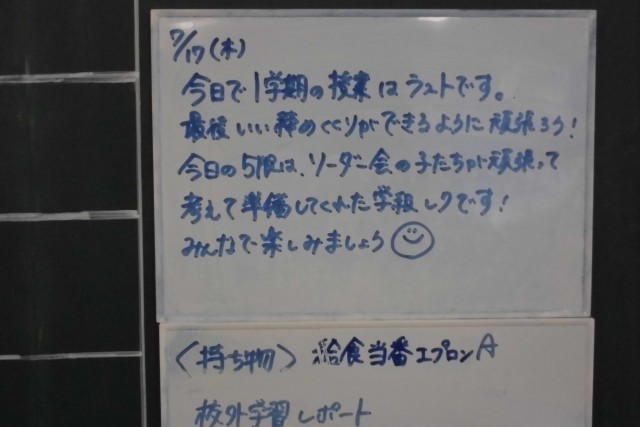 7/17(木)
今日で1学期の授業はラストです。
最後いい締めくくりができるように頑張ろう!
今日の5限は、リーダー会の子たちが頑張って
考えて準備してくれた学級レクです!
みんなで楽しみましょう
〈持ち物〉 給食当番エプロンA
校外学習レポート